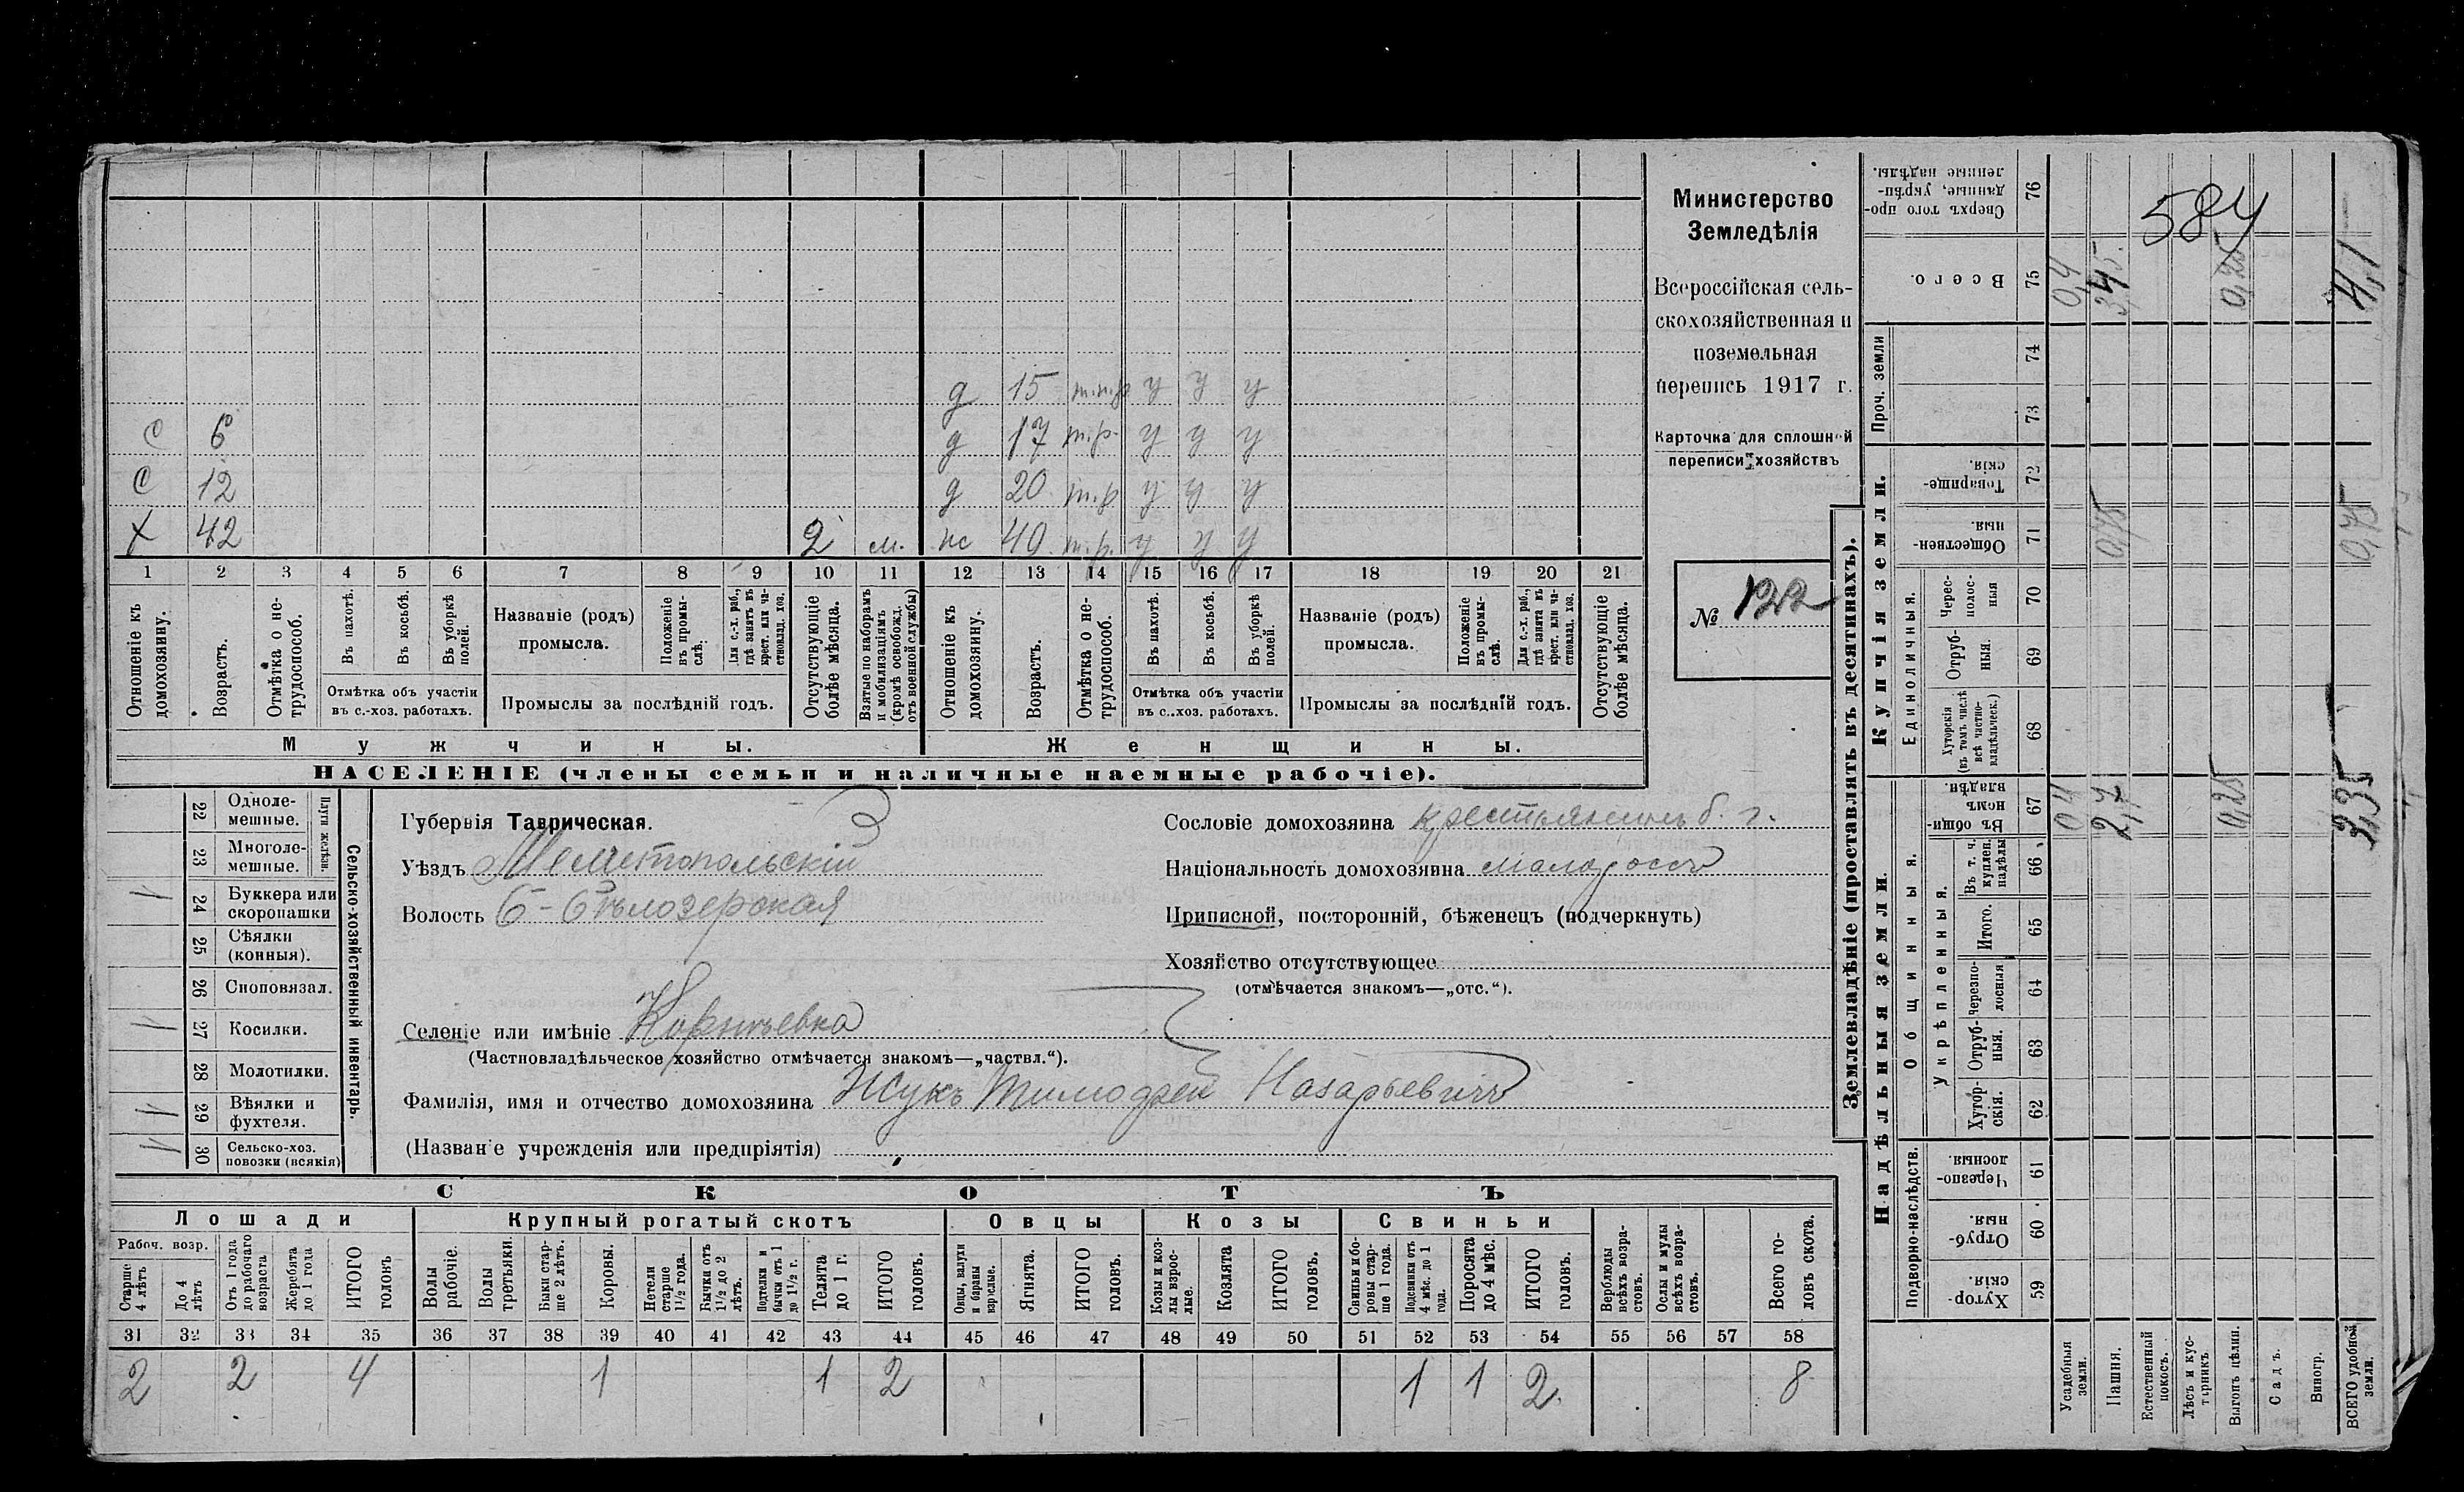 Министерство
Земледѣлія
Всероссійская сель-
скохозяйственная и
поземельная
перепись 1917 г.
Карточка для сплошной
переписи хозяйствъ
№ 122
584
д 15 т.п.р у у у
С 6 д 17 т.р. у у у
С 12 д 20 т.р у у у
Х 42 2 м. нс 40 т.р. у у у
1 2 3 4 5 6 7 8 9 10 11 12 13 14 15 16 17 18 19 20 21
Отношеніе къ домохозяину.
Возрастъ.
Отмѣтка о не-трудоспособ.
Въ пахотѣ.
Въ косьбѣ.
Въ уборкѣ полей.
Отмѣтка объ участіи въ с.-хоз. работахъ.
Названіе (родъ) промысла.
Положеніе въ промы-слѣ.
Для с.-х. раб., гдѣ занятъ въ крест. или ча-стновлад. хоз.
Промыслы за послѣдній годъ.
Отсутствующіе болѣе мѣсяца.
Взятые по наборамъ и мобилизаціямъ (кромѣ освобожд. отъ военной службы)
Отношеніе къ домохозяину.
Возрастъ.
Отмѣтка о не-трудоспособ.
Въ пахотѣ.
Въ косьбѣ.
Въ уборкѣ полей.
Отмѣтка объ участіи въ с.-хоз. работахъ.
Названіе (родъ) промысла.
Положеніе въ промы-слѣ.
Для с.-х. раб., гдѣ занята въ крест. или ча-стновлад. хоз.
Промыслы за послѣдній годъ.
Отсутствующіе болѣе мѣсяца.
Мужчины. Женщины.
НАСЕЛЕНІЕ (члены семьи и наличные наемные рабочіе).
Сельско-хозяйственный инвентарь.
Плуги желѣзн.
22 Одноле-мешные.
23 Многоле-мешные.
1 24 Буккера или скоропашки
25 Сѣялки (конныя).
26 Сноповязал.
1 27 Косилки.
28 Молотилки.
1 29 Вѣялки и фухтеля.
1 30 Сельско-хоз. повозки (всякія)
3
Губернія Таврическая.
Уѣздъ Мелитопольскій
Волость Б-Бѣлозерская
Селеніе или имѣніе
(Частновладѣльческое хозяйство отмѣчается знакомъ—„частвл.“).
Фамилія, имя и отчество домохозяина Жукъ Тимофей Назарьевичъ
(Названіе учрежденія или предпріятія)
Сословіе домохозяина крестьянинъ б. г.
Національность домохозяина малороссъ
Приписной, посторонній, бѣженецъ (подчеркнуть)
Хозяйство отсутствующее
(отмѣчается знакомъ—„отс.“).
СКОТЪ
Лошади Крупный рогатый скотъ Овцы Козы Свиньи
Рабоч. возр.
Старше 4 лѣтъ
До 4 лѣтъ
Отъ 1 года до рабочаго возраста
Жеребята до 1 года
ИТОГО головъ
Волы рабочіе.
Волы третьяки.
Быки стар-ше 2 лѣтъ.
Коровы.
Нетели старше 1½ года.
Бычки отъ 1½ до 2 лѣтъ.
Подтелки и бычки отъ 1 до 1½ г.
Телята до 1 г.
ИТОГО головъ.
Овцы, валухи и бараны взрослые.
Ягнята.
ИТОГО головъ.
Козы и коз-лы взрос-лые.
Козлята
ИТОГО головъ.
Свиньи и бо-ровы стар-ше 1 года.
Подсвинки отъ 4 мѣс. до 1 года.
Поросята до 4 мѣс.
ИТОГО головъ.
Верблюды всѣхъ возра-стовъ.
Ослы и мулы всѣхъ возра-стовъ.
Всего го-ловъ скота.
31 32 33 34 35 36 37 38 39 40 41 42 43 44 45 46 47 48 49 50 51 52 53 54 55 56 57 58
2 2 4 1 1 2 1 1 2. 8
Землевладѣніе (проставлять въ десятинахъ).
Надѣльныя земли. Купчія земли.
Подворно-наслѣдств.
Общинныя.
Укрѣпленныя.
Единоличныя.
Проч. земли
59 Хутор-скія.
60 Отруб-ныя.
61 Черезпо-лосныя.
62 Хутор-скія.
63 Отруб-ныя.
64 Черезпо-лосныя
65 Итого.
66 Въ т. ч. куплен. надѣлы
67 Въ общин-номъ владѣн.
68 Хуторскія (въ томъ числѣ всѣ частно-владѣльческ.)
69 Отруб-ныя.
70 Черес-полос-ныя
71 Обществен-ныя.
72 Товарище-скія.
73
74
75 Всего.
76 Сверхъ того про-данные, укрѣп-ленные надѣлы.
Усадебныя земли. 0,4 0,4
Пашня. 2,7 0,75 3,45.
Естественный покосъ.
Лѣсъ и кус-тарникъ.
Выгонъ цѣлин. 0,25 0,25
Садъ.
Виногр.
ВСЕГО удобной земли. 3,35 0,75 4,1